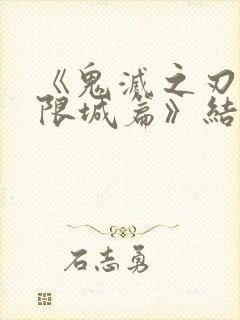 《鬼滅之刃
限城篇》結
石志勇